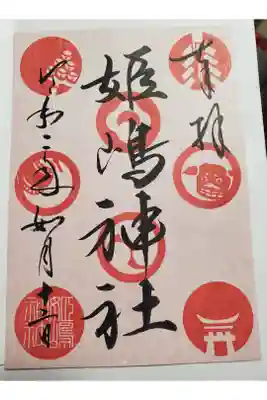 奉拝
姫嶋神社
令和二年如月十一日
姫嶋神社